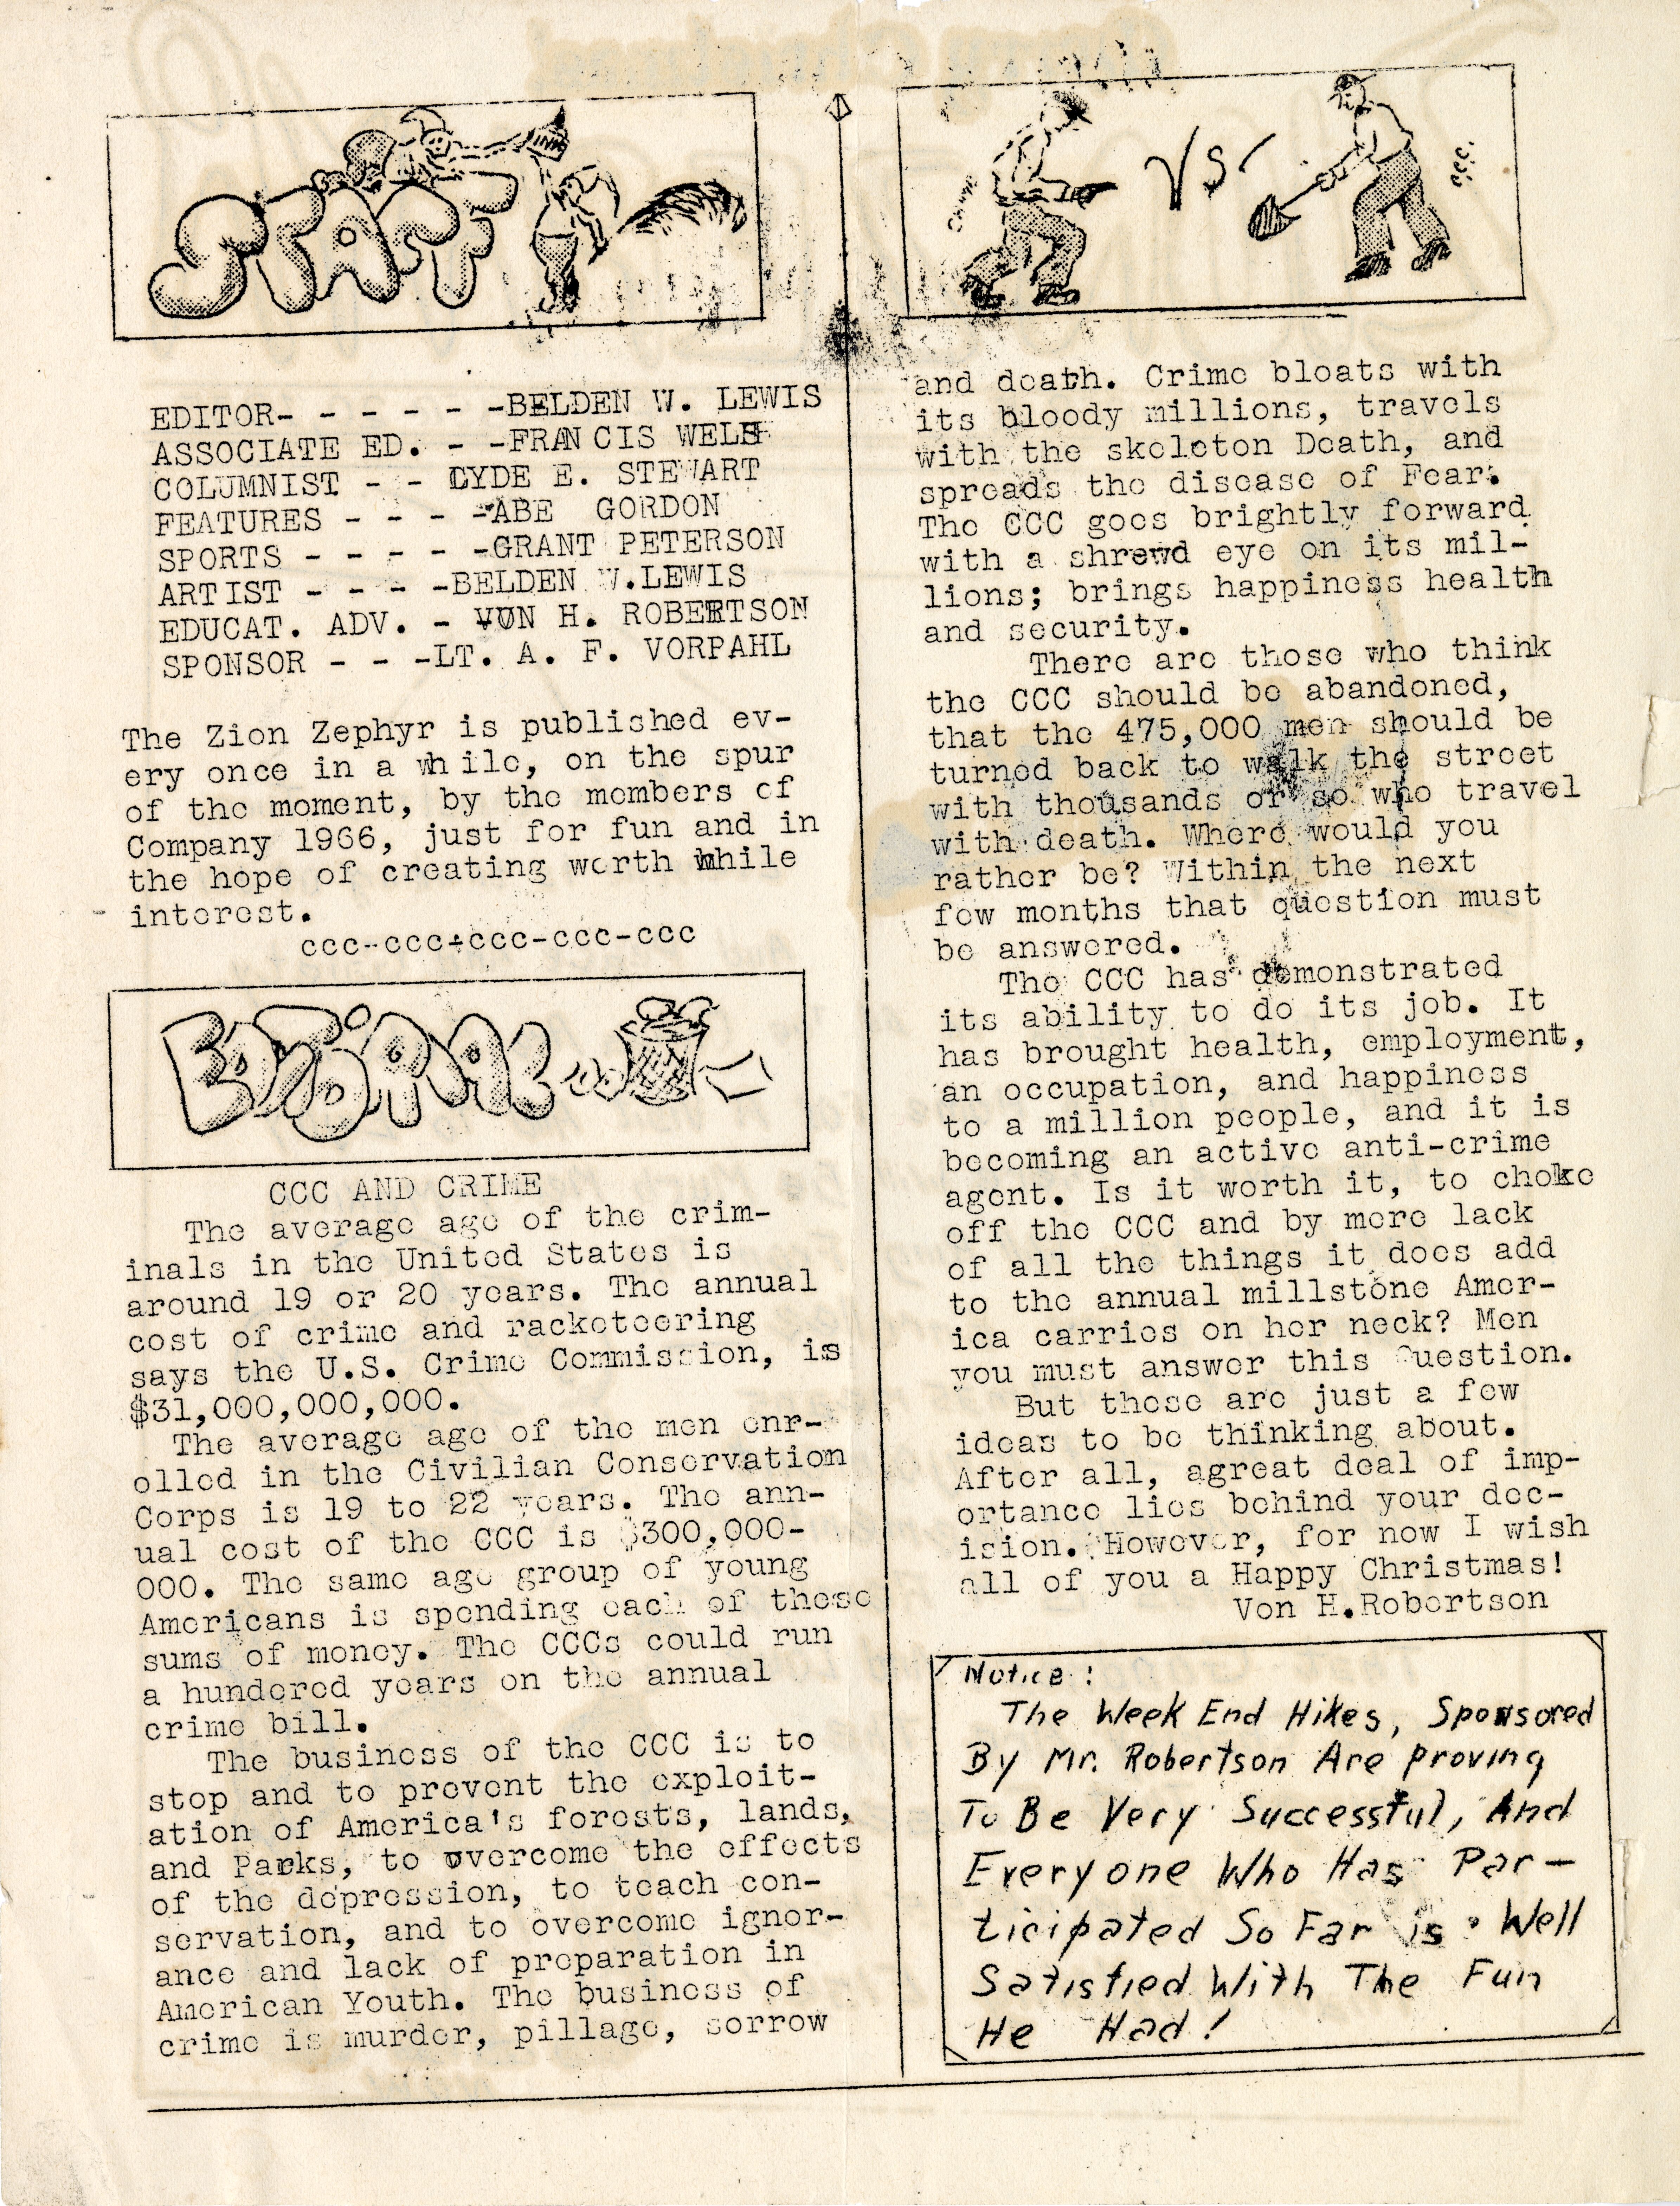 STAFF
EDITOR- - - - - - -BELDEN W. LEWIS
ASSOCIATE ED. - -FRANCIS WELSH
COLUMNIST - - CYDE E. STEWART
FEATURES - - - -ABE GORDON
SPORTS - - - - -GRANT PETERSON
ARTIST - - - -BELDEN W.LEWIS
EDUCAT. ADV. - VON H. ROBERTSON
SPONSOR - - -LT. A. F. VORPAHL
The Zion Zephyr is published ev-
ery once in a while, on the spur
of the moment, by the members of
Company 1966, just for fun and in
the hope of creating worth while
interest.
ccc-ccc-ccc-ccc-ccc
EDITORIAL
CCC AND CRIME
The average age of the crim-
inals in the United States is
around 19 or 20 years. The annual
cost of crime and racketeering
says the U.S. Crime Commission, is
$31,000,000,000.
The average age of the men enr-
olled in the Civilian Conservation
Corps is 19 to 22 years. The ann-
ual cost of the CCC is $300,000-
000. The same age group of young
Americans is spending each of these
sums of money. The CCCs could run
a hundered years on the annual
crime bill.
The business of the CCC is to
stop and to prevent the exploit-
ation of America's forests, lands,
and Parks, to overcome the effects
of the depression, to teach con-
servation, and to overcome ignor-
ance and lack of preparation in
American Youth. The business of
crime is murder, pillage, sorrow
VS
and death. Crime bloats with
its bloody millions, travels
with the skeleton Death, and
spreads the disease of Fear.
The CCC goes brightly forward
with a shrewd eye on its mil-
lions; brings happiness health
and security.
There are those who think
the CCC should be abandoned,
that the 475,000 men should be
turned back to walk the street
with thousands or so who travel
with death. Where would you
rather be? Within the next
few months that question must
be answered.
The CCC has demonstrated
its ability to do its job. It
has brought health, employment,
an occupation, and happiness
to a million people, and it is
becoming an active anti-crime
agent. Is it worth it, to choke
off the CCC and by mere lack
of all the things it does add
to the annual millstone Amer-
ica carries on her neck? Men
you must answer this Question.
But these are just a few
ideas to be thinking about.
After all, agreat deal of imp-
ortance lies behind your dec-
ision. However, for now I wish
all of you a Happy Christmas!
Von H.Robertson
Notice:
The Week End Hikes, Sponsored
By Mr. Robertson Are proving
To Be Very Successful, And
Everyone Who Has Par-
ticipated So Far is Well
Satisfied With The Fun
He Had!